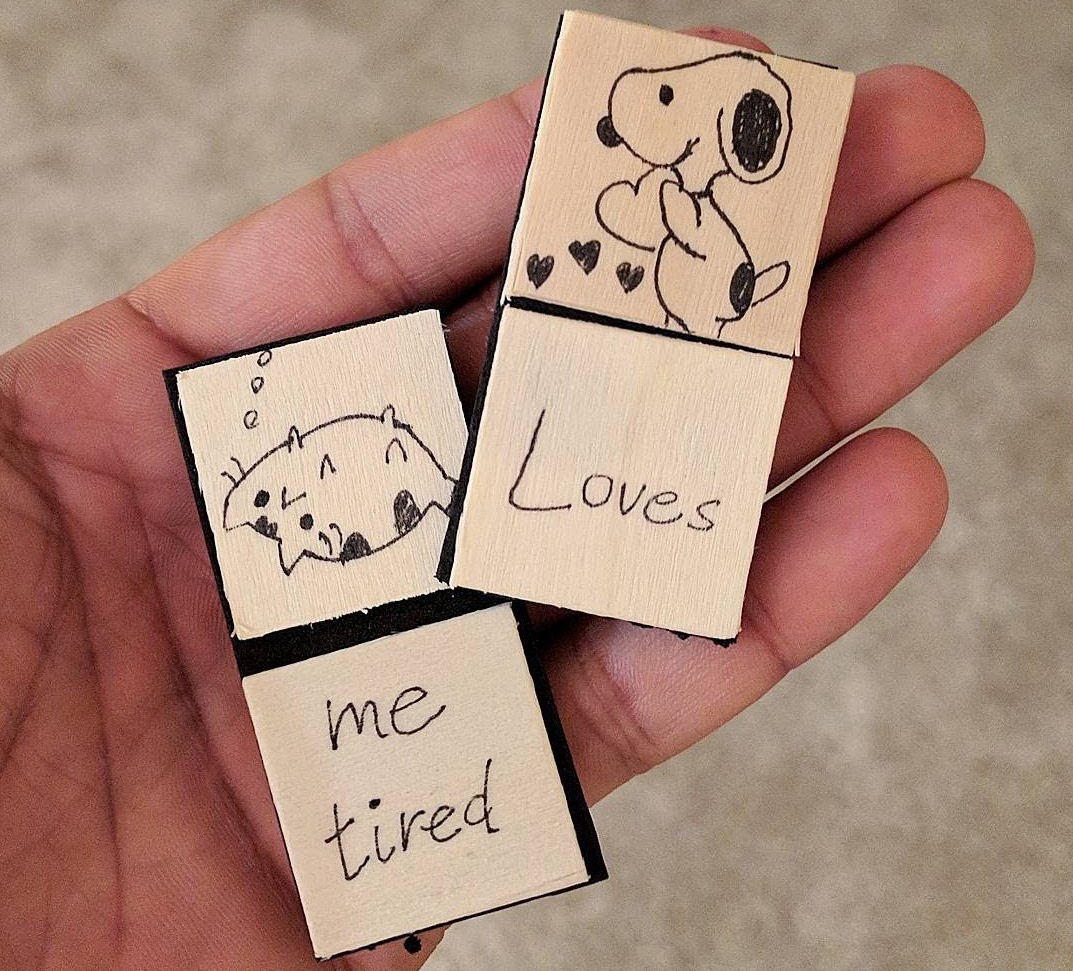 Loves
me
tired